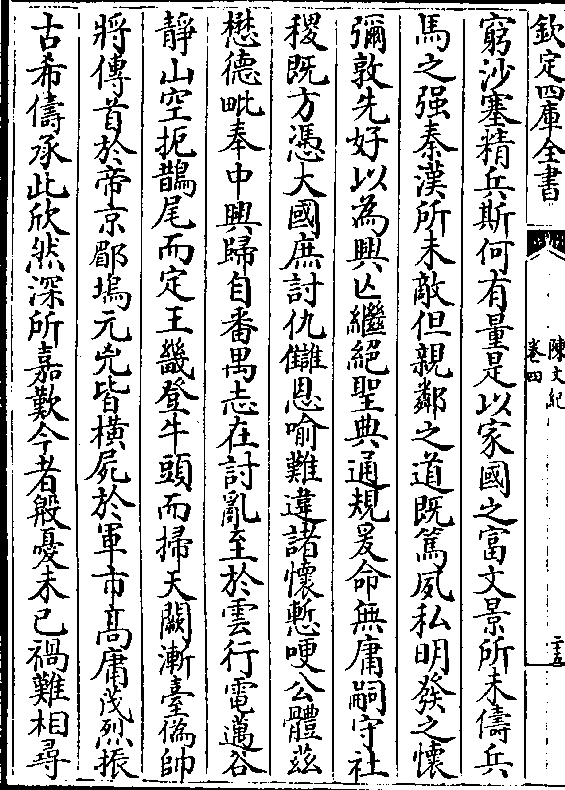 欽定四庫全書
陳文紀
卷四
二五
窮沙塞精兵斯何有量是以家國之富文景所未儔兵
馬之强秦漢所未敵但親鄰之道既篤夙私明發之懷
彌敦先好以為興亡繼絕聖典通規爰命無庸嗣守社
稷既方憑大國庶討仇讎恩喻難違諸懷慙哽公體茲
懋德毗奉中興歸自番禺志在討亂至於雲行電邁谷
靜山空扼鵲尾而定王畿登牛頭而掃天闕漸臺偽帥
將傳首於帝京郿塢元兇皆橫屍於軍市髙庸茂烈振
古希儔承此欣然深所嘉歎今者殷憂未已禍難相尋